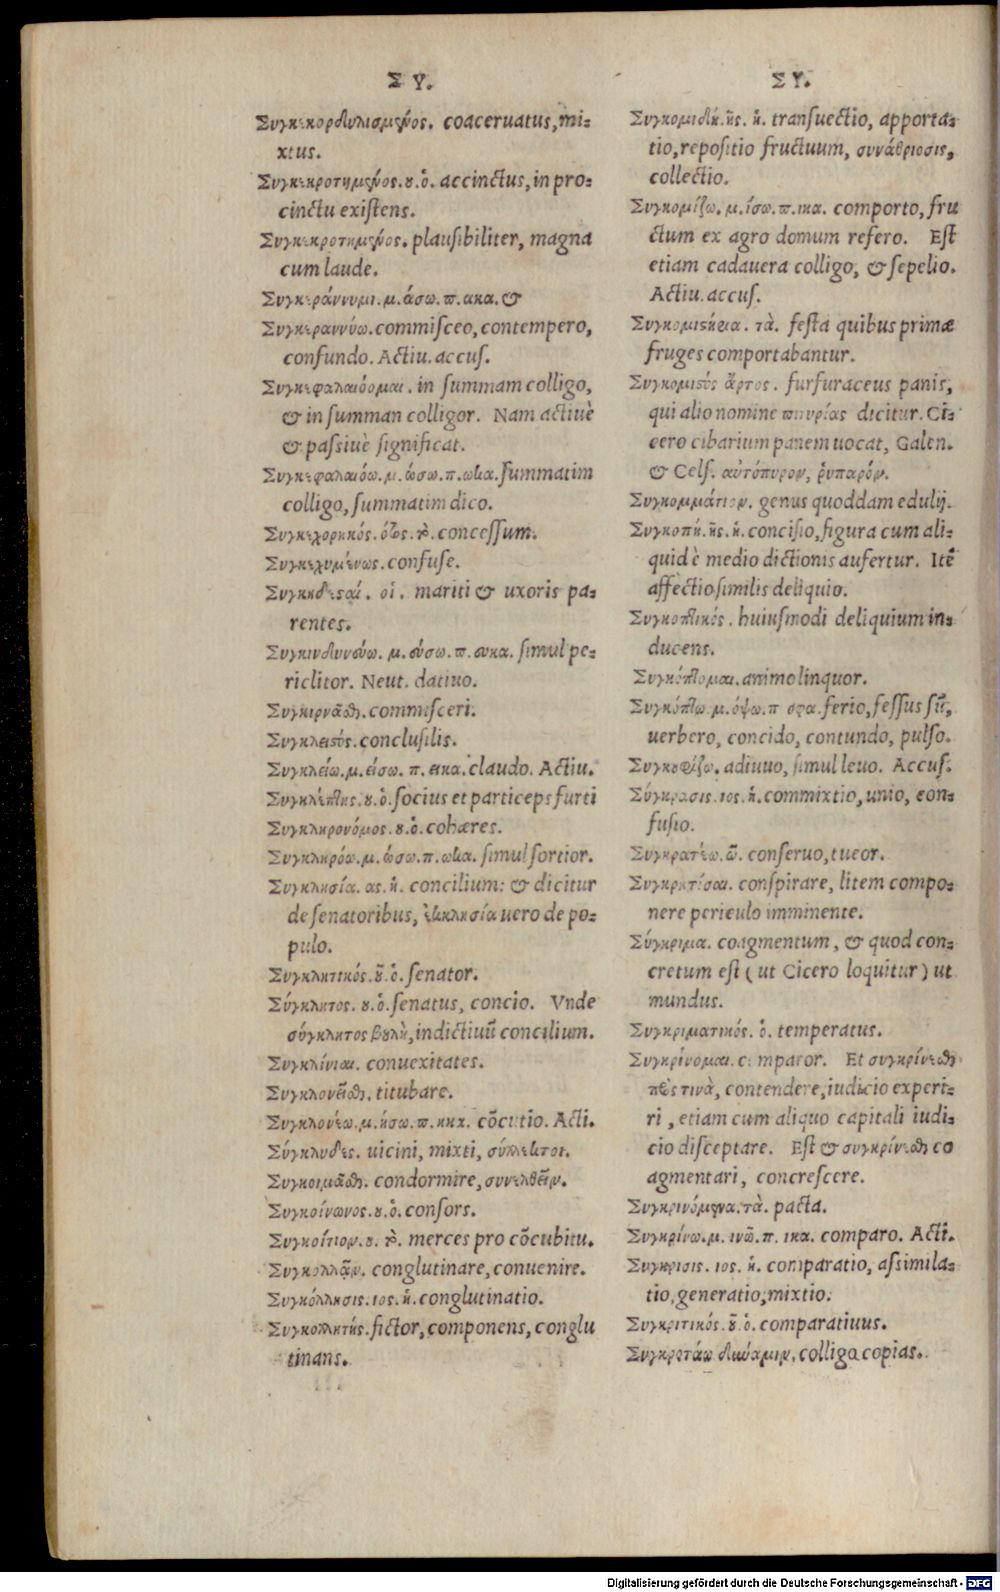 Σ Υ.
Συγκεκορδυλισμένος. coaceruatus, mi-
xtus.
Συγκεκροτημένος. ου. ὁ. accinctus, in pro-
cinctu existens.
Συγκεκροτημένος. plausibiliter, magna
cum laude.
Συγκεράννυμι. μ. άσω. π. ακα. &
Συγκεραννύω. commisceo, contempero,
confundo. Actiu. accus.
Συγκεφαλαιόομαι. in summam colligo,
& in summan colligor. Nam actiuè
& passiuè significat.
Συγκεφαλαιόω. μ. ώσω. π. ωκα. summatim
colligo, summatim dico.
Συγκεχορηκός. ότος. τὸ. concessum.
Συγκεχυμένως. confuse.
Συγκηδεσταί. οἱ. mariti & uxoris pa-
rentes.
Συγκινδυνεύω. μ. εύσω. π. ευκα. simul pe-
riclitor. Neut. datiuo.
Συγκιρνᾶσθαι. commisceri.
Συγκλειστός. conclusilis.
Συγκλείω. μ. είσω. π. εικα. claudo. Actiu.
Συγκλέπτης. ου. ὁ. socius et particeps furti
Συγκληρονόμος. ου. ὁ. cohæres.
Συγκληρόω. μ. ώσω. π. ωκα. simul sortior.
Συγκλησία. ας. ἡ. concilium: & dicitur
de senatoribus, ἐκκλησία uero de po-
pulo.
Συγκλητικός. οῦ. ὁ. senator.
Σύγκλητος. ου. ὁ. senatus, concio. Vnde
σύγκλητος βουλὴ, indictiuū concilium.
Συγκλίνιαι. conuexitates.
Συγκλονεῖσθαι. titubare.
Συγκλονέω. μ. ήσω. π. ηκα. cōcutio. Acti.
Σύγκλυδες. uicini, mixti, σύλλεκτοι.
Συγκοιμᾶσθαι. condormire, συνελθεῖν.
Συγκοίνωνος. ου. ὁ. consors.
Συγκοίτιον. ου. τὸ. merces pro cōcubitu.
Συγκολλᾷν. conglutinare, conuenire.
Συγκόλλησις. ιος. ἡ. conglutinatio.
Συγκολλητής. fictor, componens, conglu
tinans.
Σ Υ.
Συγκομιδή. ῆς. ἡ. transuectio, apporta-
tio, repositio fructuum, συνάθροισις,
collectio.
Συγκομίζω. μ. ίσω. π. ικα. comporto, fru
ctum ex agro domum refero. Est
etiam cadauera colligo, & sepelio.
Actiu. accus.
Συγκομιστήεια. τὰ. festa quibus primæ
fruges comportabantur.
Συγκομιστὸς ἄρτος. furfuraceus panis,
qui alio nomine πιτυρίας dicitur. Ci-
cero cibarium panem uocat, Galen.
& Cels. αὐτόπυρον, ῥυπαρόν.
Συγκομμάτιον. genus quoddam edulij.
Συγκοπή. ῆς. ἡ. concisio, figura cum ali-
quid è medio dictionis aufertur. Itē
affectio similis deliquio.
Συγκοπτικός. huiusmodi deliquium in-
ducens.
Συγκόπτομαι. animo linquor.
Συγκόπτω. μ. όψω. π οφα. ferio, fessus sū,
uerbero, concido, contundo, pulso.
Συγκουφίζω. adiuuo, simul leuo. Accus.
Σύγκρασις. ιος. ἡ. commixtio, unio, con-
fusio.
Συγκρατέω. ῶ. conseruo, tueor.
Συγκρητίσαι. conspirare, litem compo-
nere periculo imminente.
Σύγκριμα. coagmentum, & quod con-
cretum est (ut Cicero loquitur) ut
mundus.
Συγκριματικός. ὁ. temperatus.
Συγκρίνομαι. comparor. Et συγκρίνεσθαι
πρός τινὰ, contendere, iudicio experi-
ri, etiam cum aliquo capitali iudi-
cio disceptare. Est & συγκρίνεσθαι co
agmentari, concrescere.
Συγκρινόμενα. τὰ. pacta.
Συγκρίνω. μ. ινῶ. π. ικα. comparo. Acti.
Συγκρισις. ιος. ἡ. comparatio, assimila-
tio, generatio, mixtio.
Συγκριτικός. οῦ. ὁ. comparatiuus.
Συγκροτάω δυνάμιν. colligo copias.
Digitalisierung gefördert durch die Deutsche Forschungsgemeinschaft - DFG